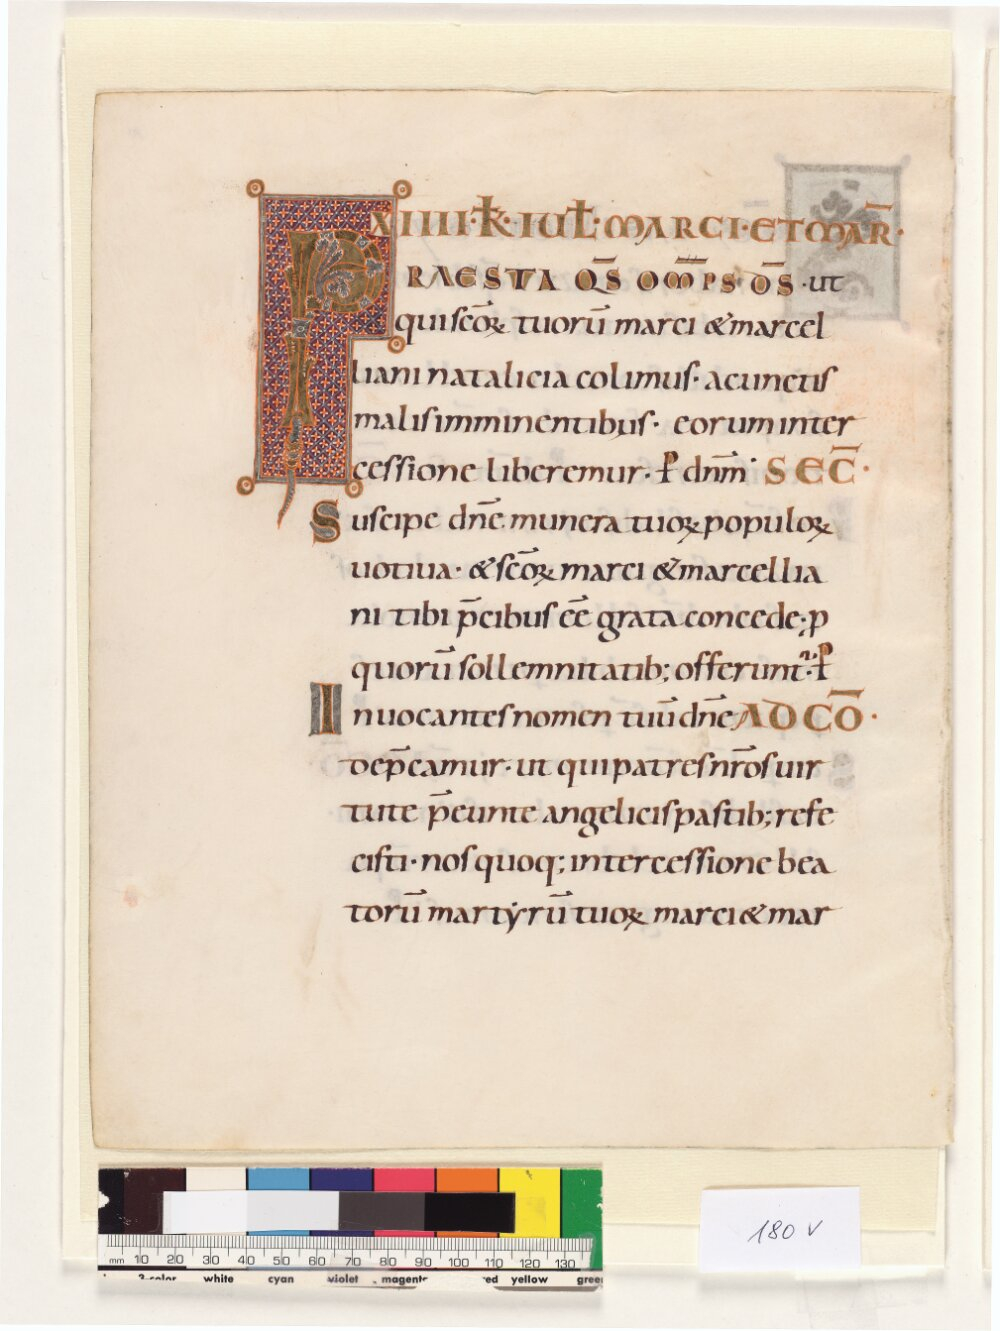 XIIII·K̄·IUL̄·MARCI·ET MAR̄·
PRAESTA Q̄S OM̄PS·D̄S·ut
qui sc̄oꝝ tuorū marci &marcel
liani natalicia colimus· acunctis
malis imminentibus· eorum inter
cessione liberemur· ꝑ dnm̄ SEC̄·
Suscipe dn̄e munera tuoꝝ populoꝝ
uotiua· &sc̄oꝝ marci &marcellia
ni tibi p̄cibus eē grata concede; ꝓ
quorū sollemnitatib; offerunt᷑· ꝑ
Inuocantes nomen tuū dn̄e AD CŌ·
dep̄camur· ut qui patres nr̄os uir
tute p̄eunte angelicis pastib; refe
cisti· nos quoq; intercessione bea
torū martẏrū tuoꝝ marci & mar
mm 10 20 30 40 50 60 70 80 90 100 110 120 130
3-color white cyan violet magenta red yellow green
180 v